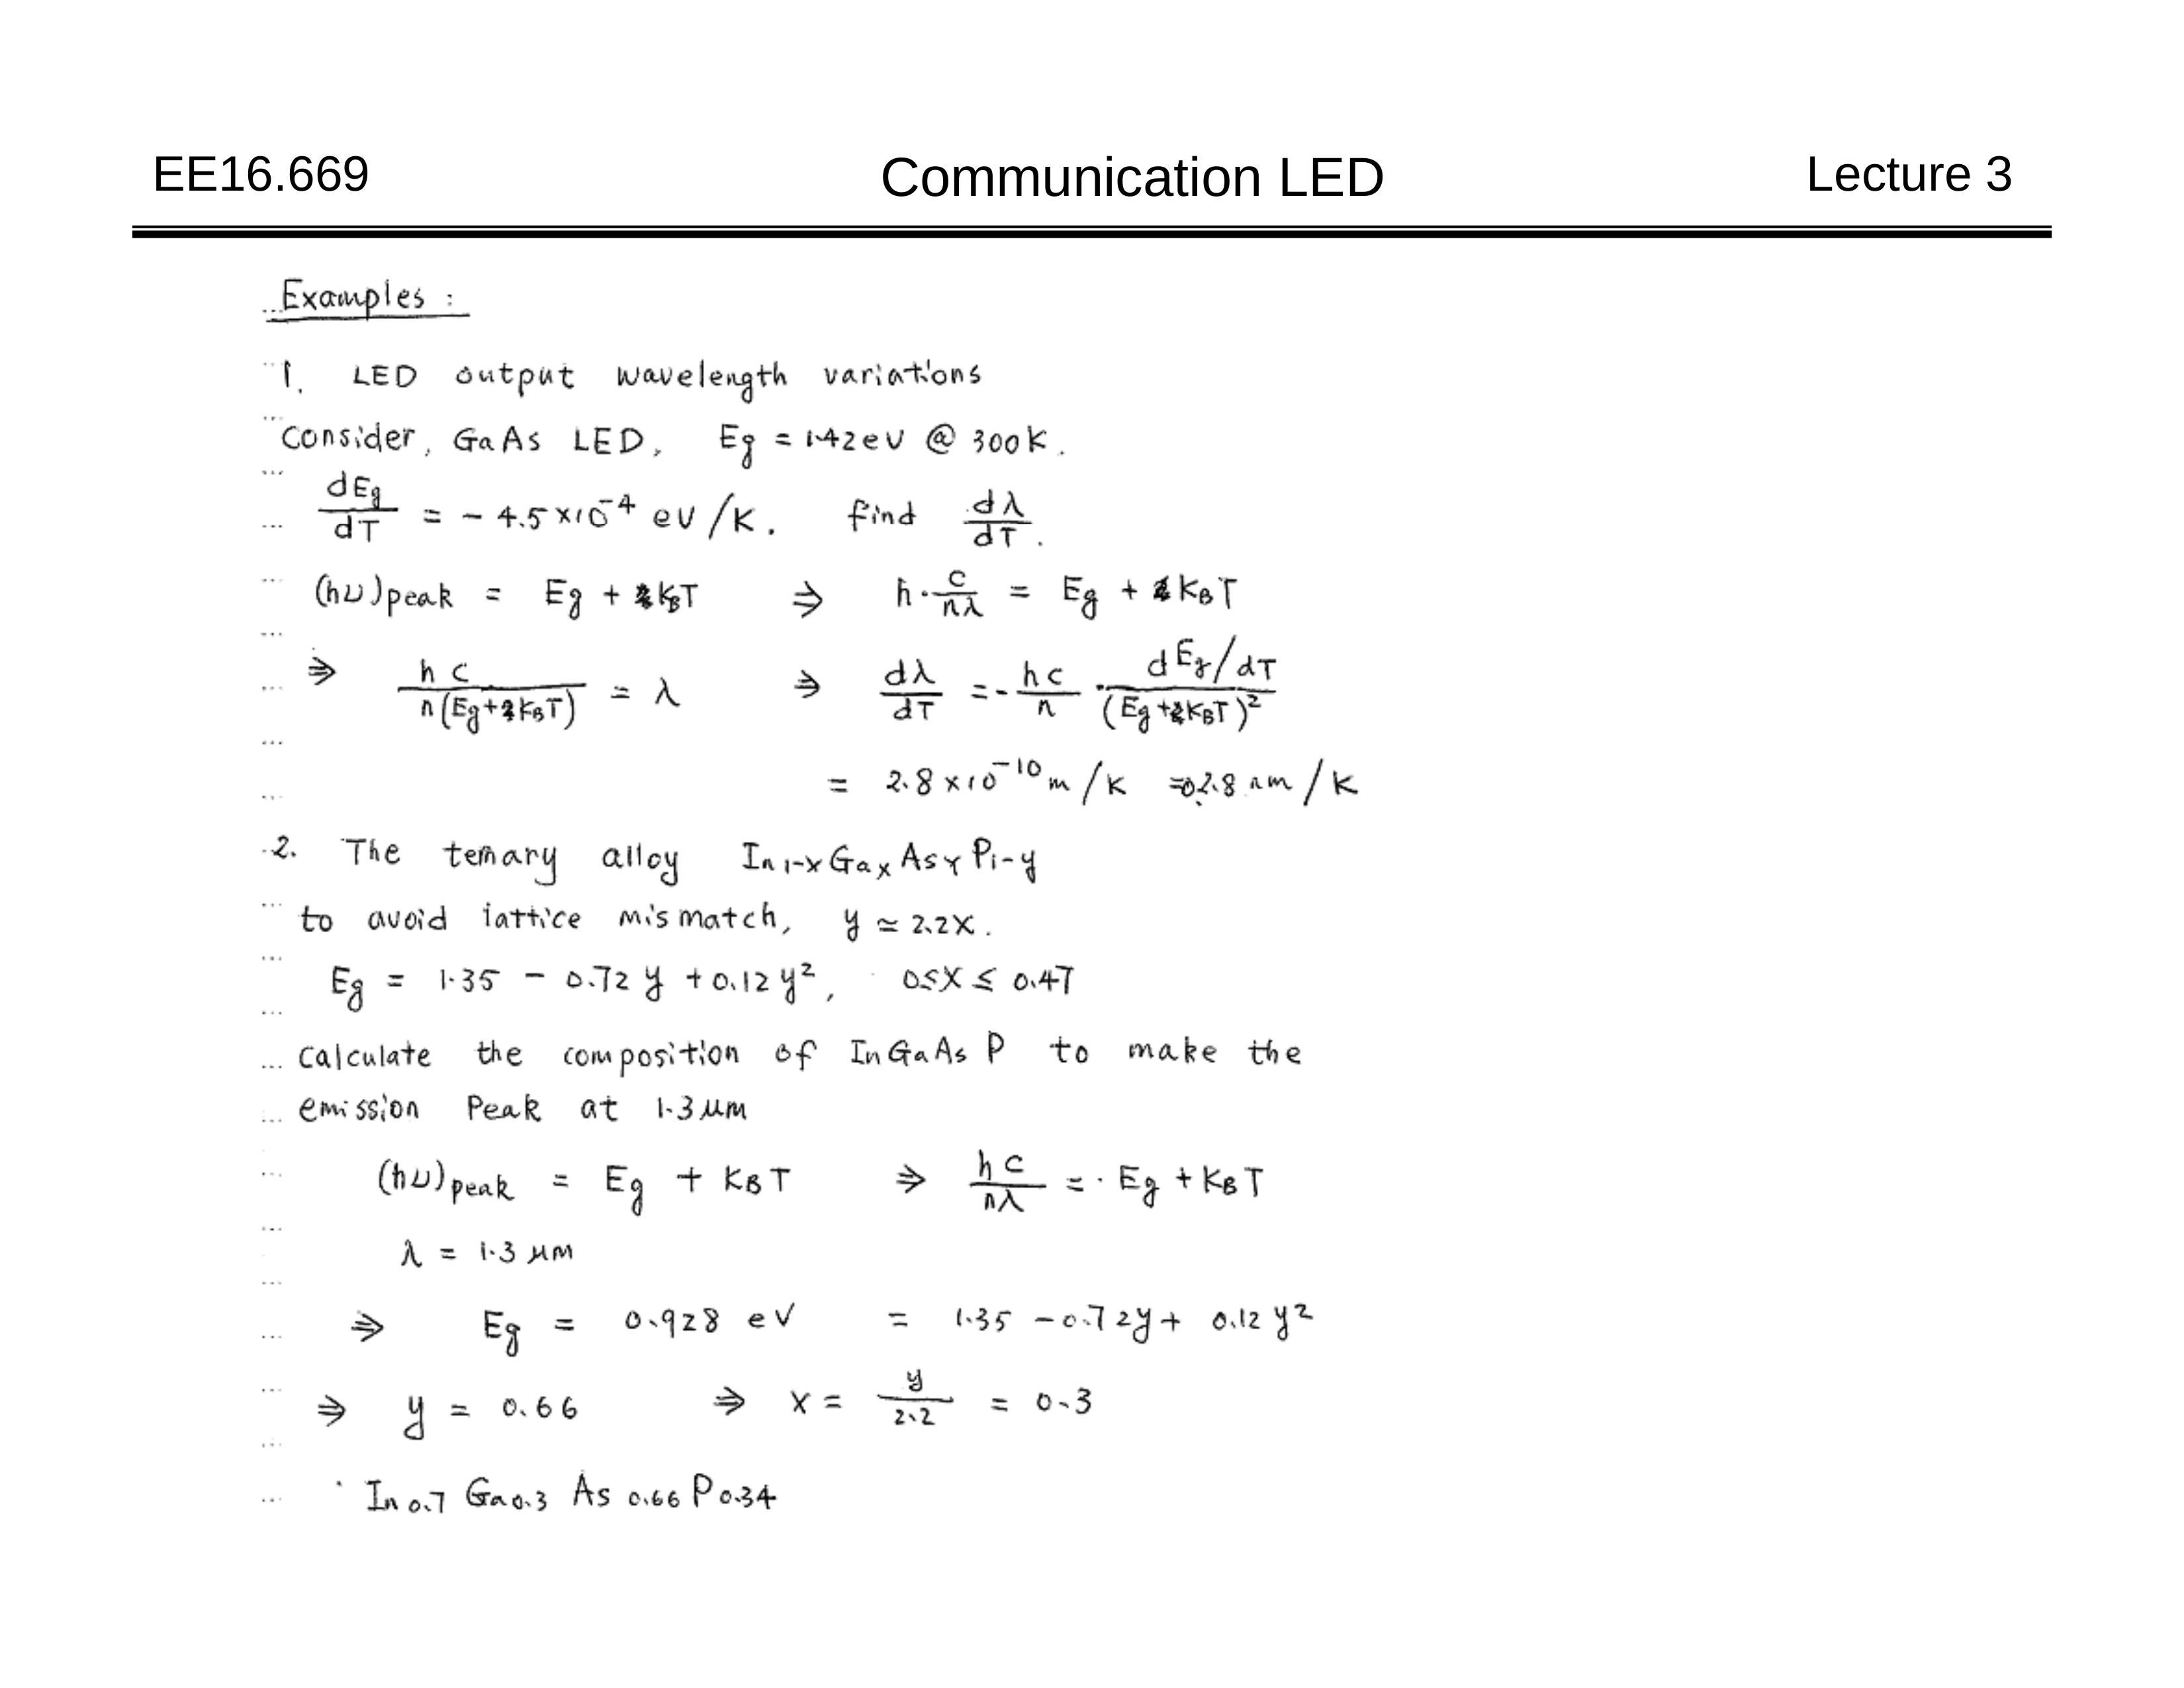 EE16.669 Communication LED Lecture 3
Examples :
1. LED output wavelength variations
Consider, GaAs LED, Eg = 1.42 eV @ 300K.
dEg/dT = - 4.5×10^-4 eV/K. find dλ/dT.
(hυ)peak = Eg + KBT ⇒ h·c/nλ = Eg + KBT
⇒ hc/n(Eg+KBT) = λ ⇒ dλ/dT = - hc/n · dEg/dT/(Eg+KBT)²
= 2.8×10^-10 m/K = 0.28 nm/K
2. The ternary alloy In1-xGaxAsyP1-y
to avoid lattice mismatch, y ≃ 2.2X.
Eg = 1.35 - 0.72y + 0.12y², 0≤X≤ 0.47
Calculate the composition of InGaAsP to make the
emission Peak at 1.3μm
(hυ)peak = Eg + KBT ⇒ hc/nλ = Eg + KBT
λ = 1.3 μm
⇒ Eg = 0.928 eV = 1.35 - 0.72y + 0.12y²
⇒ y = 0.66 ⇒ X = y/2.2 = 0.3
In0.7 Ga0.3 As0.66 P0.34